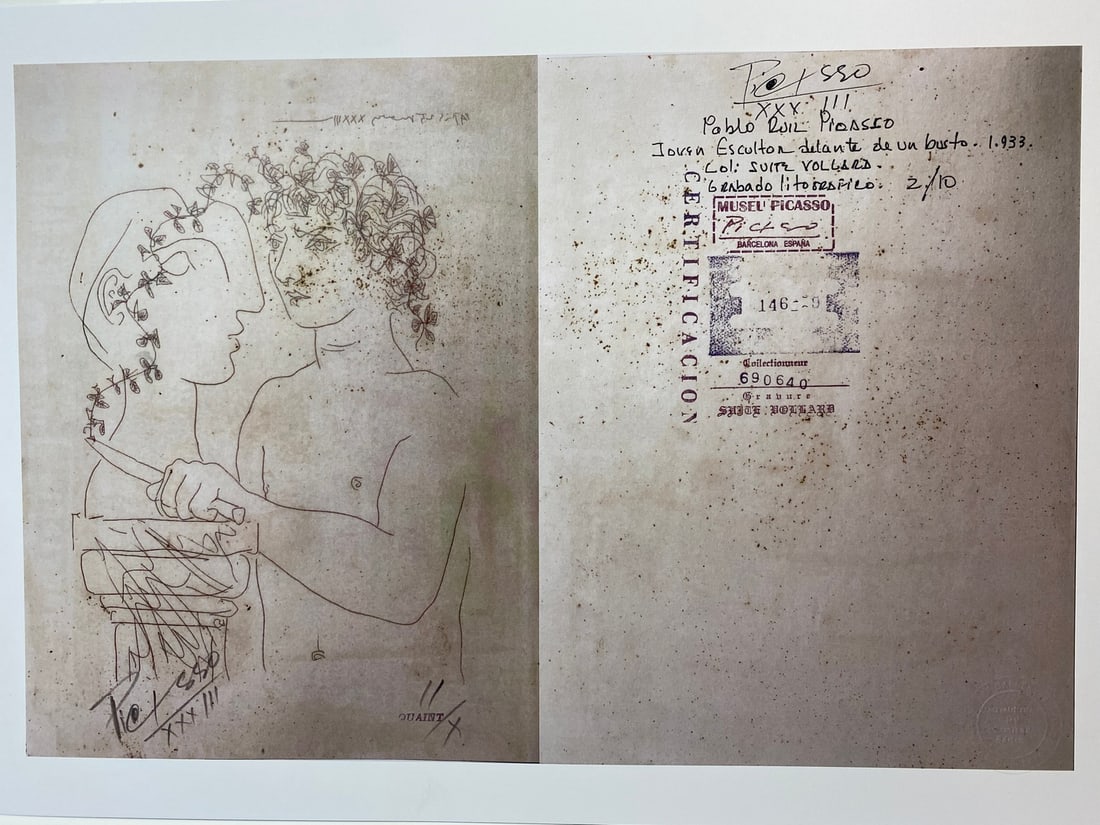 XXXIII
Picasso
XXXIII
II/X
QUAINT
Picasso
XXXIII
Pablo Ruiz Picasso
Joven Escultor delante de un busto. 1.933.
Col: SUITE VOLLARD.
Grabado litografico. 2/10
CERTIFICACION
MUSEU PICASSO
Picasso
BARCELONA ESPAÑA
146-9
Collectionneur
690640
Gravure
SUITE VOLLARD